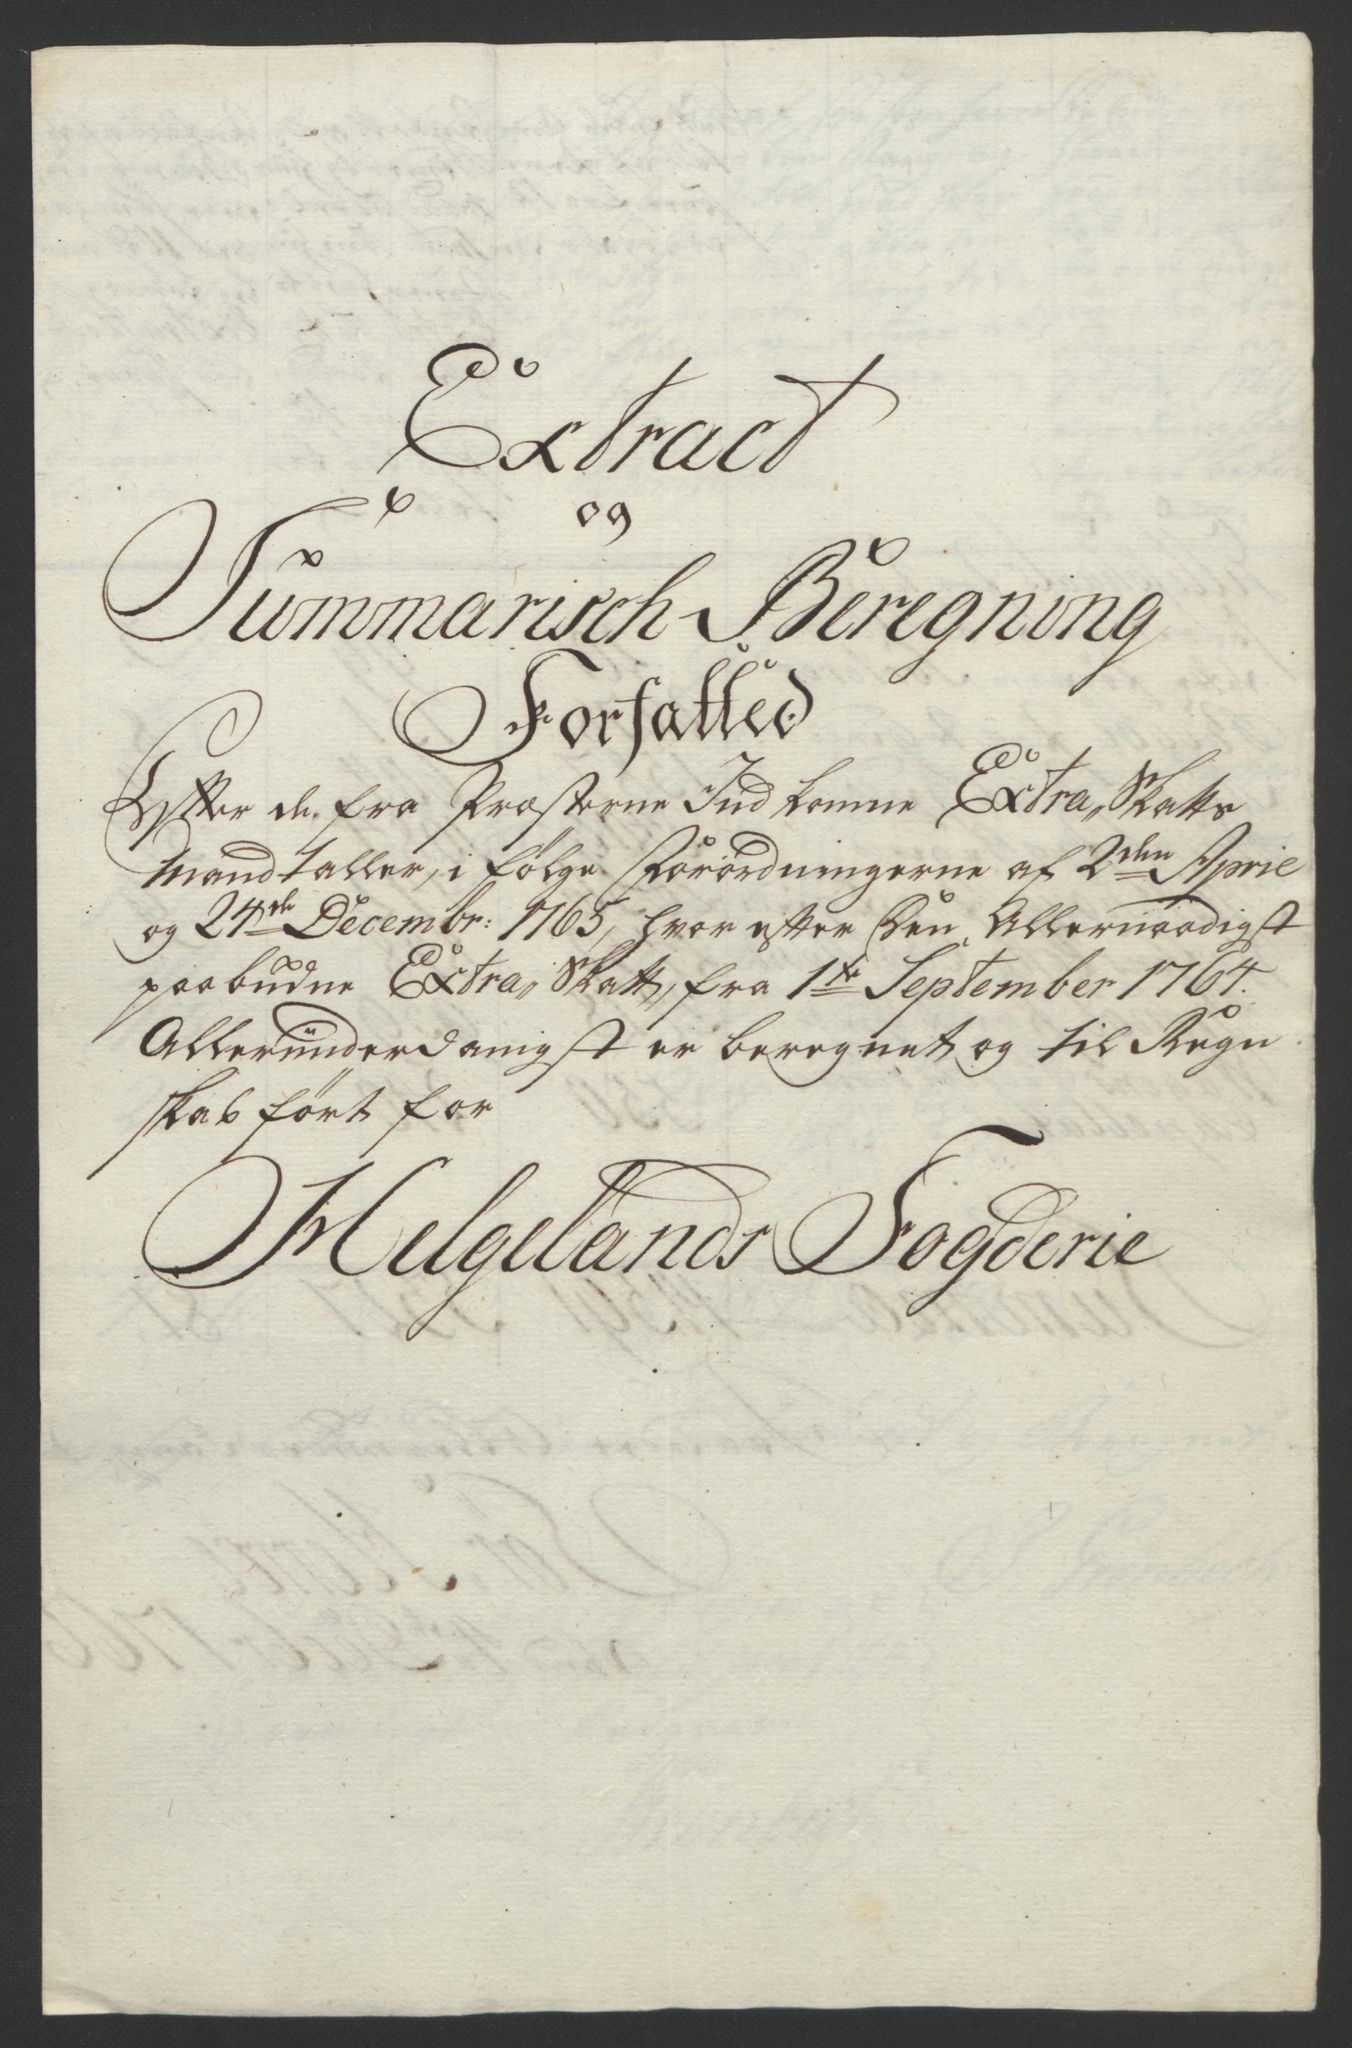 Extract
og
Summarisch Beregning
Forfatted
Efter de fra Præsterne Ind komne Extra Skatts
Mandtaller, i følge Forordningerne af 2den April
og 24de Decembr: 1765, hvor efter Den Allernaadigst
paabudne Extra Skatt, fra 1te September 1764.
Alleründerdanigst er beregnet og til Regn
skab ført for
Helgelands Fogderie